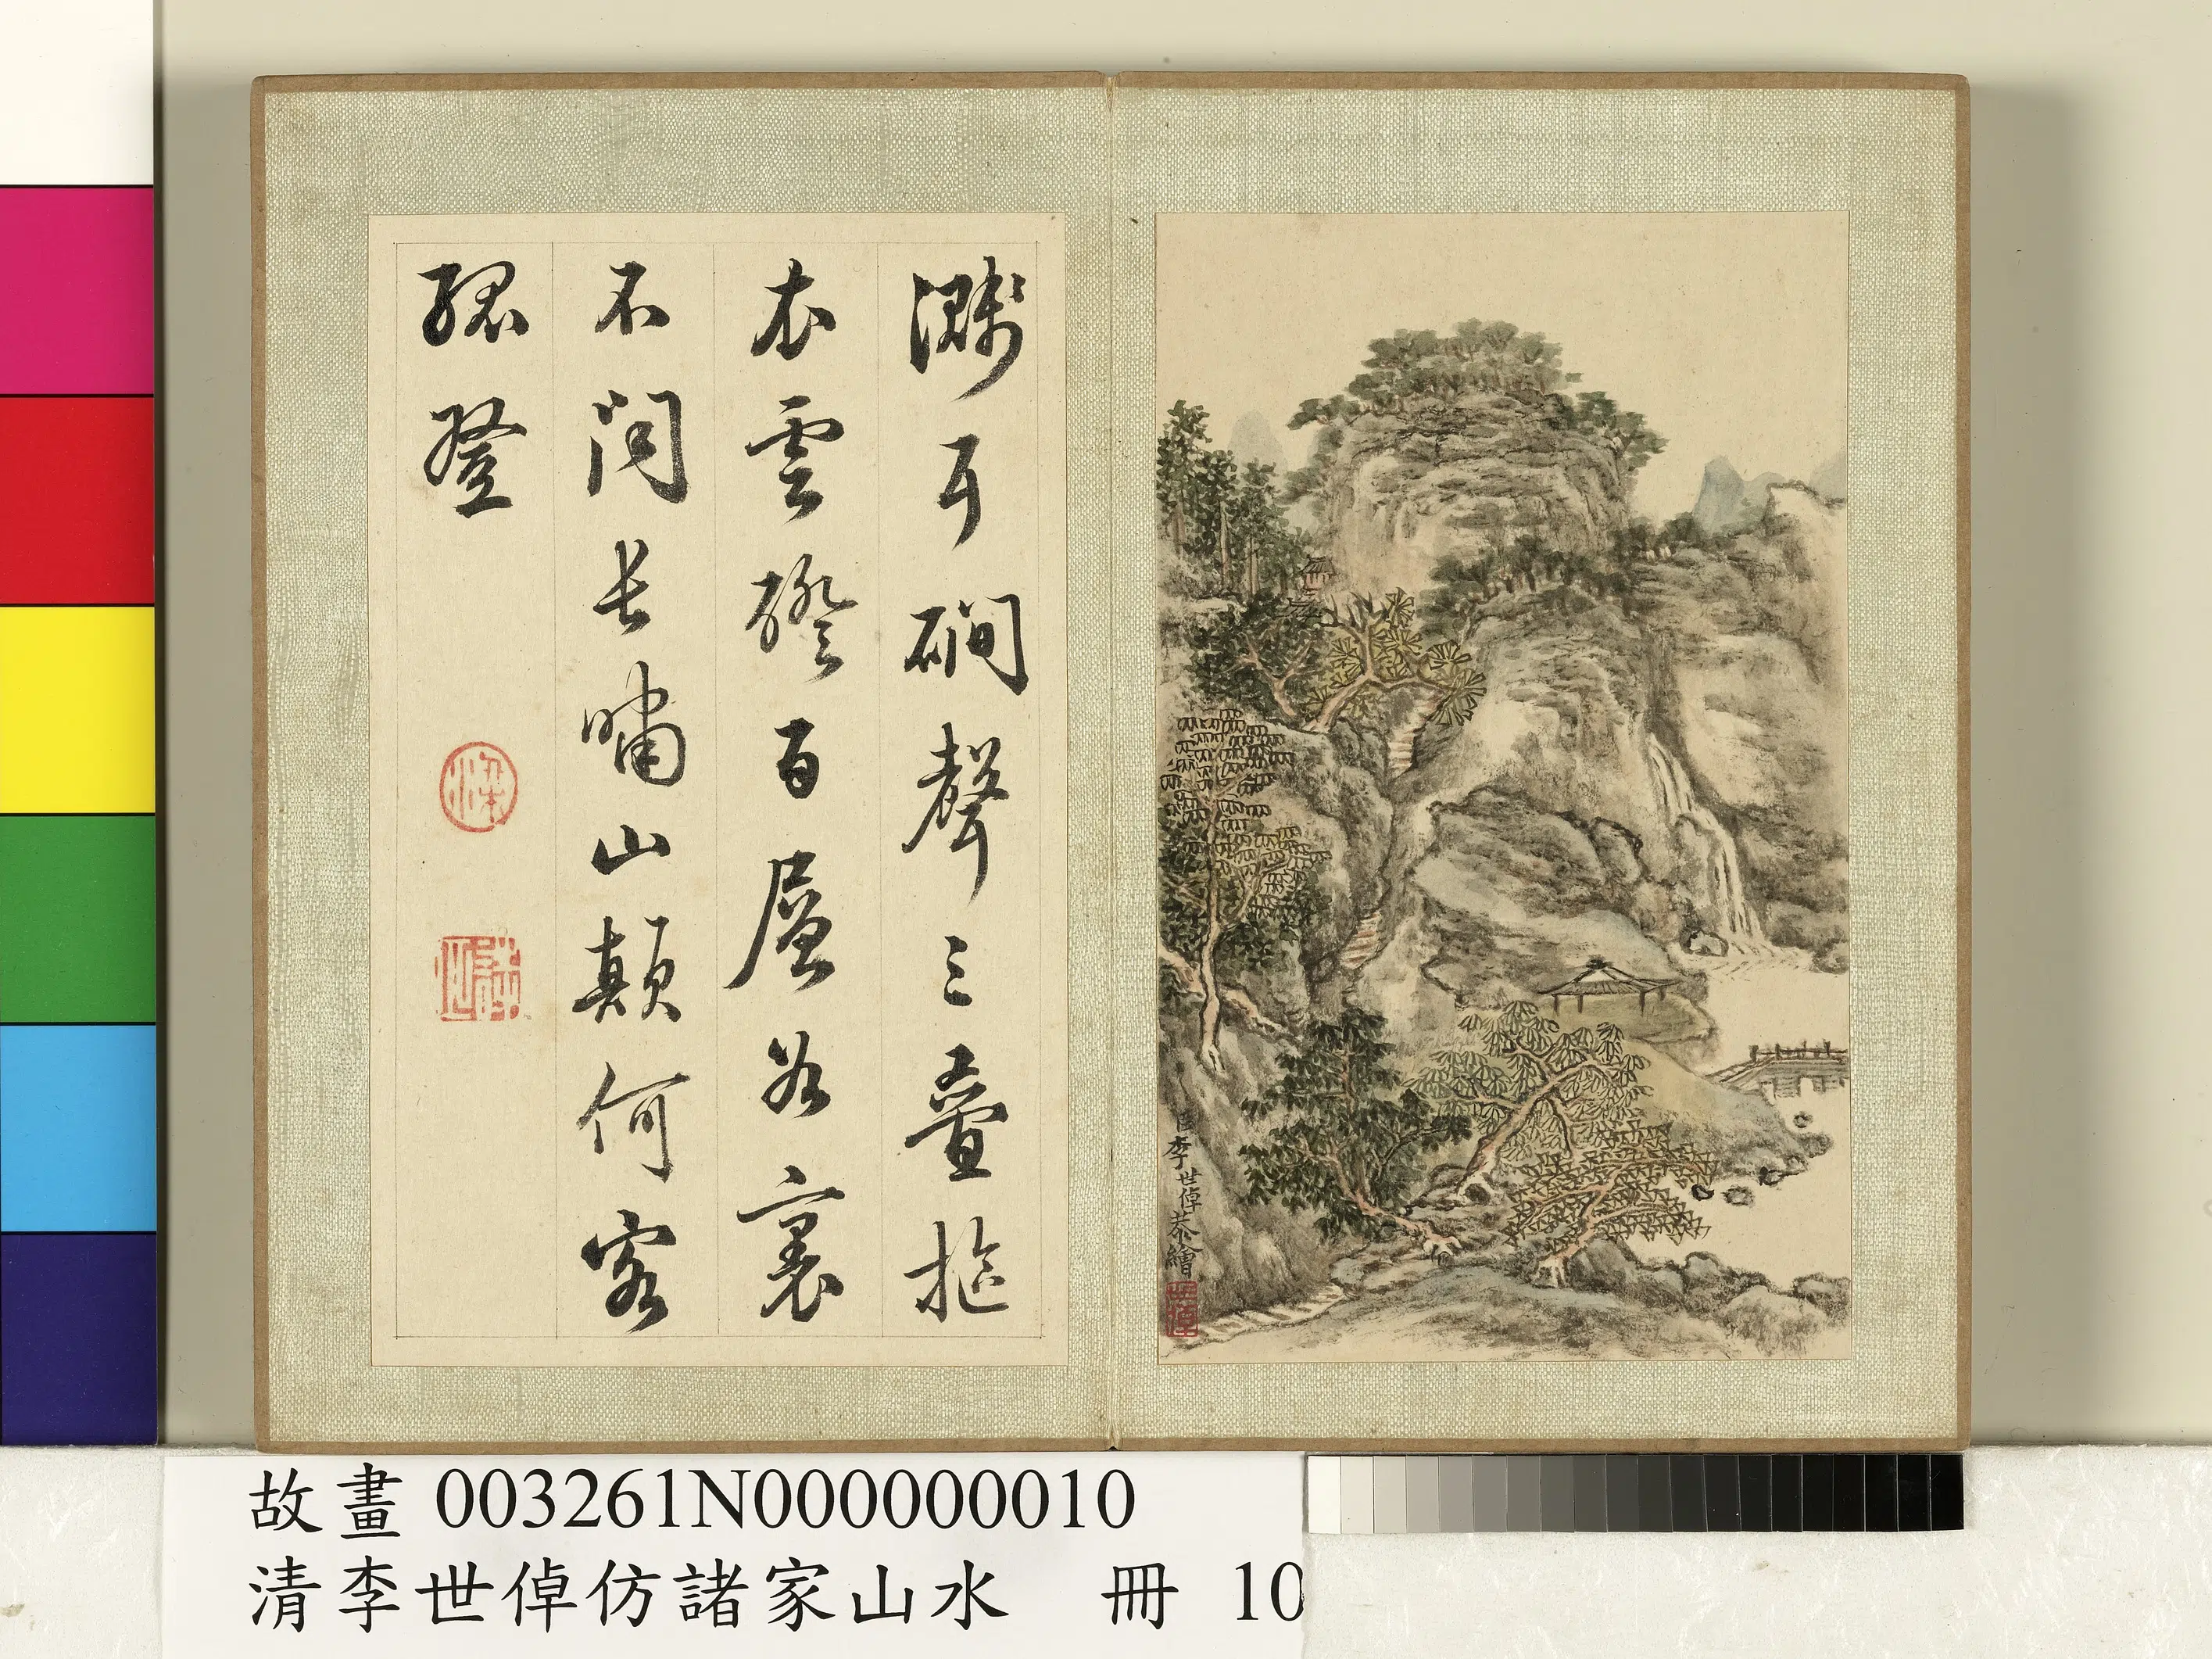 濺耳磵聲三疊摳
衣雲磴百層谷裏
不聞長嘯山顛何客
孤登
臣李世倬恭繪
世倬
故畫 003261N000000010
清李世倬仿諸家山水 冊 10